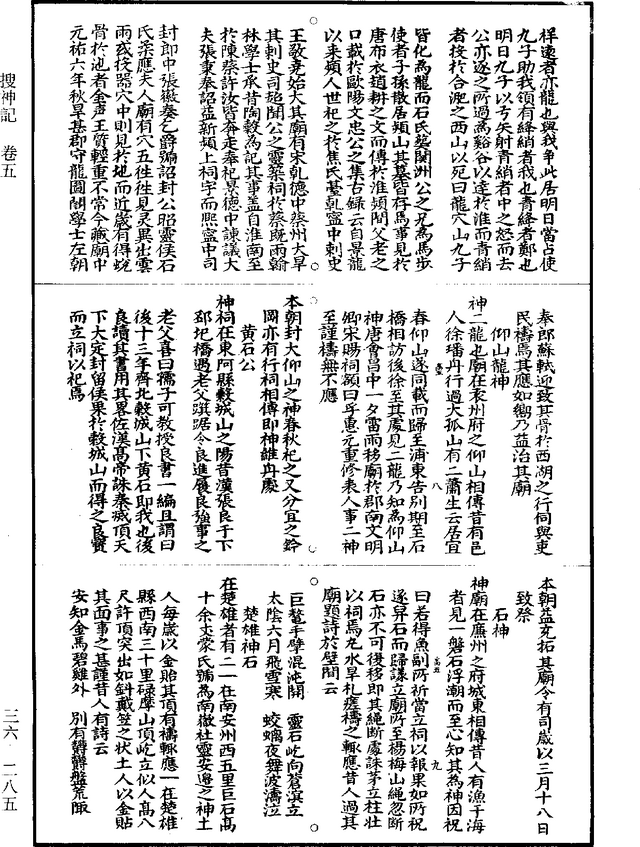 祥遠者亦龍也與我爭此居明日當占使
九子助我領有絳綃者我也青綃者鄭也
明日九子以弓矢射青綃者中之怒而去
公亦逐之所過為谿谷以達於淮而青綃
者投於合淝之西山以死曰龍穴山九子
皆化為龍而石氏葬關洲公之兄為馬步
使者子孫散居潁山其墓皆存焉事見於
唐布衣趙耕之文而傳於淮潁間父老之
口載於歐陽文忠公之集古錄云自景龍
以來潁人世祀之於焦氏臺乾寧中刺史
王敬蕘始大其廟有宋乾德中蔡州大旱
其刺史司超聞公之靈築祠於蔡既雨翰
林學士承旨陶穀為記其事蓋自淮南至
於陳蔡許汝皆奔走奉祀景德中諫議大
夫張秉奏詔益新潁上祠宇而熙寧中司
封郎中張徽奏乞爵號詔封公昭靈侯石
氏柔應夫人廟有穴五往往見灵異出雲
雨或投器穴中則見於池而近歲有得蛻
骨於池者金声玉質輕重不常今藏廟中
元祐六年秋旱甚郡守龍圖閣學士左朝
奉郎蘇軾迎致其骨於西湖之行祠與吏
民禱焉其應如嚮乃益治其廟
仰山龍神
神二龍也廟在袁州府之仰山相傳昔有邑
人徐璠舟行過大孤山有二蕭生云居宜
春仰山遂同載而歸至浦東告別期至石
橋相訪後徐至其處見二龍乃知為仰山
神唐會昌中一夕雷雨移廟於郡南文明
卿宋賜祠額曰孚惠元重修表人事二神
至謹禱無不應
本朝封大仰山之神春秋祀之又分宜之鈐
岡亦有行祠相傳即神維舟處
黃石公
神祠在東阿縣穀城山之陽昔漢張良于下
邳圯橋遇老父墮踞令良進履良強事之
老父喜曰孺子可教授良書一編且謂曰
後十三年齊北穀城山下黃石即我也後
良讀其書用其畧佐漢高帝誅秦滅項天
下大定封留侯果於穀城山而得之良寶
而立祠以祀焉
本朝益充拓其廟令有司歲以三月十八日
致祭
石神
神廟在廉州之府城東相傳昔人有漁于海
者見一磐石浮潮而至心知其為神因祝
曰若得魚副所祈當立祠以報果如所祝
遂舁石而歸謀立廟所至楊梅山繩忽斷
石亦不可後移即其繩斷處誅茅立柱壯
以祠焉凡水旱札瘥禱之輒應昔人過其
廟題詩於壁間云
巨鰲手擘混沌開　靈石屹向蒼濵立
太陰六月飛雪寒　蛟螭夜舞波濤泣
楚雄神石
在楚雄者有二一在南安州西五里巨石高
十余丈蒙氏號為南徹社靈安邊之神土
人每歲以金貼其頂有禱輒應一在楚雄
縣西南三十里碌摩山頂屹立似人高八
尺許頂突出如斜戴笠之状土人以金貼
其面事之甚謹昔人有詩云
安知金馬碧雞外　別有欝欝盤荒陬
搜神記　卷五
三六－二八五